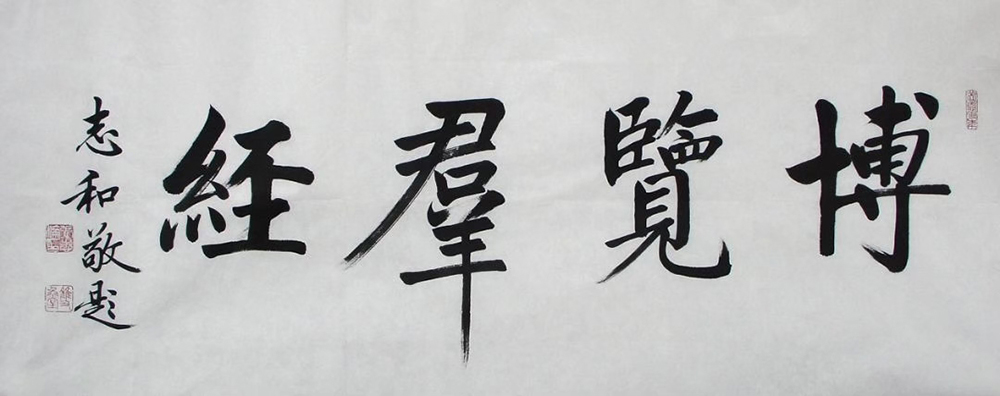 博覽羣經
志和敬題